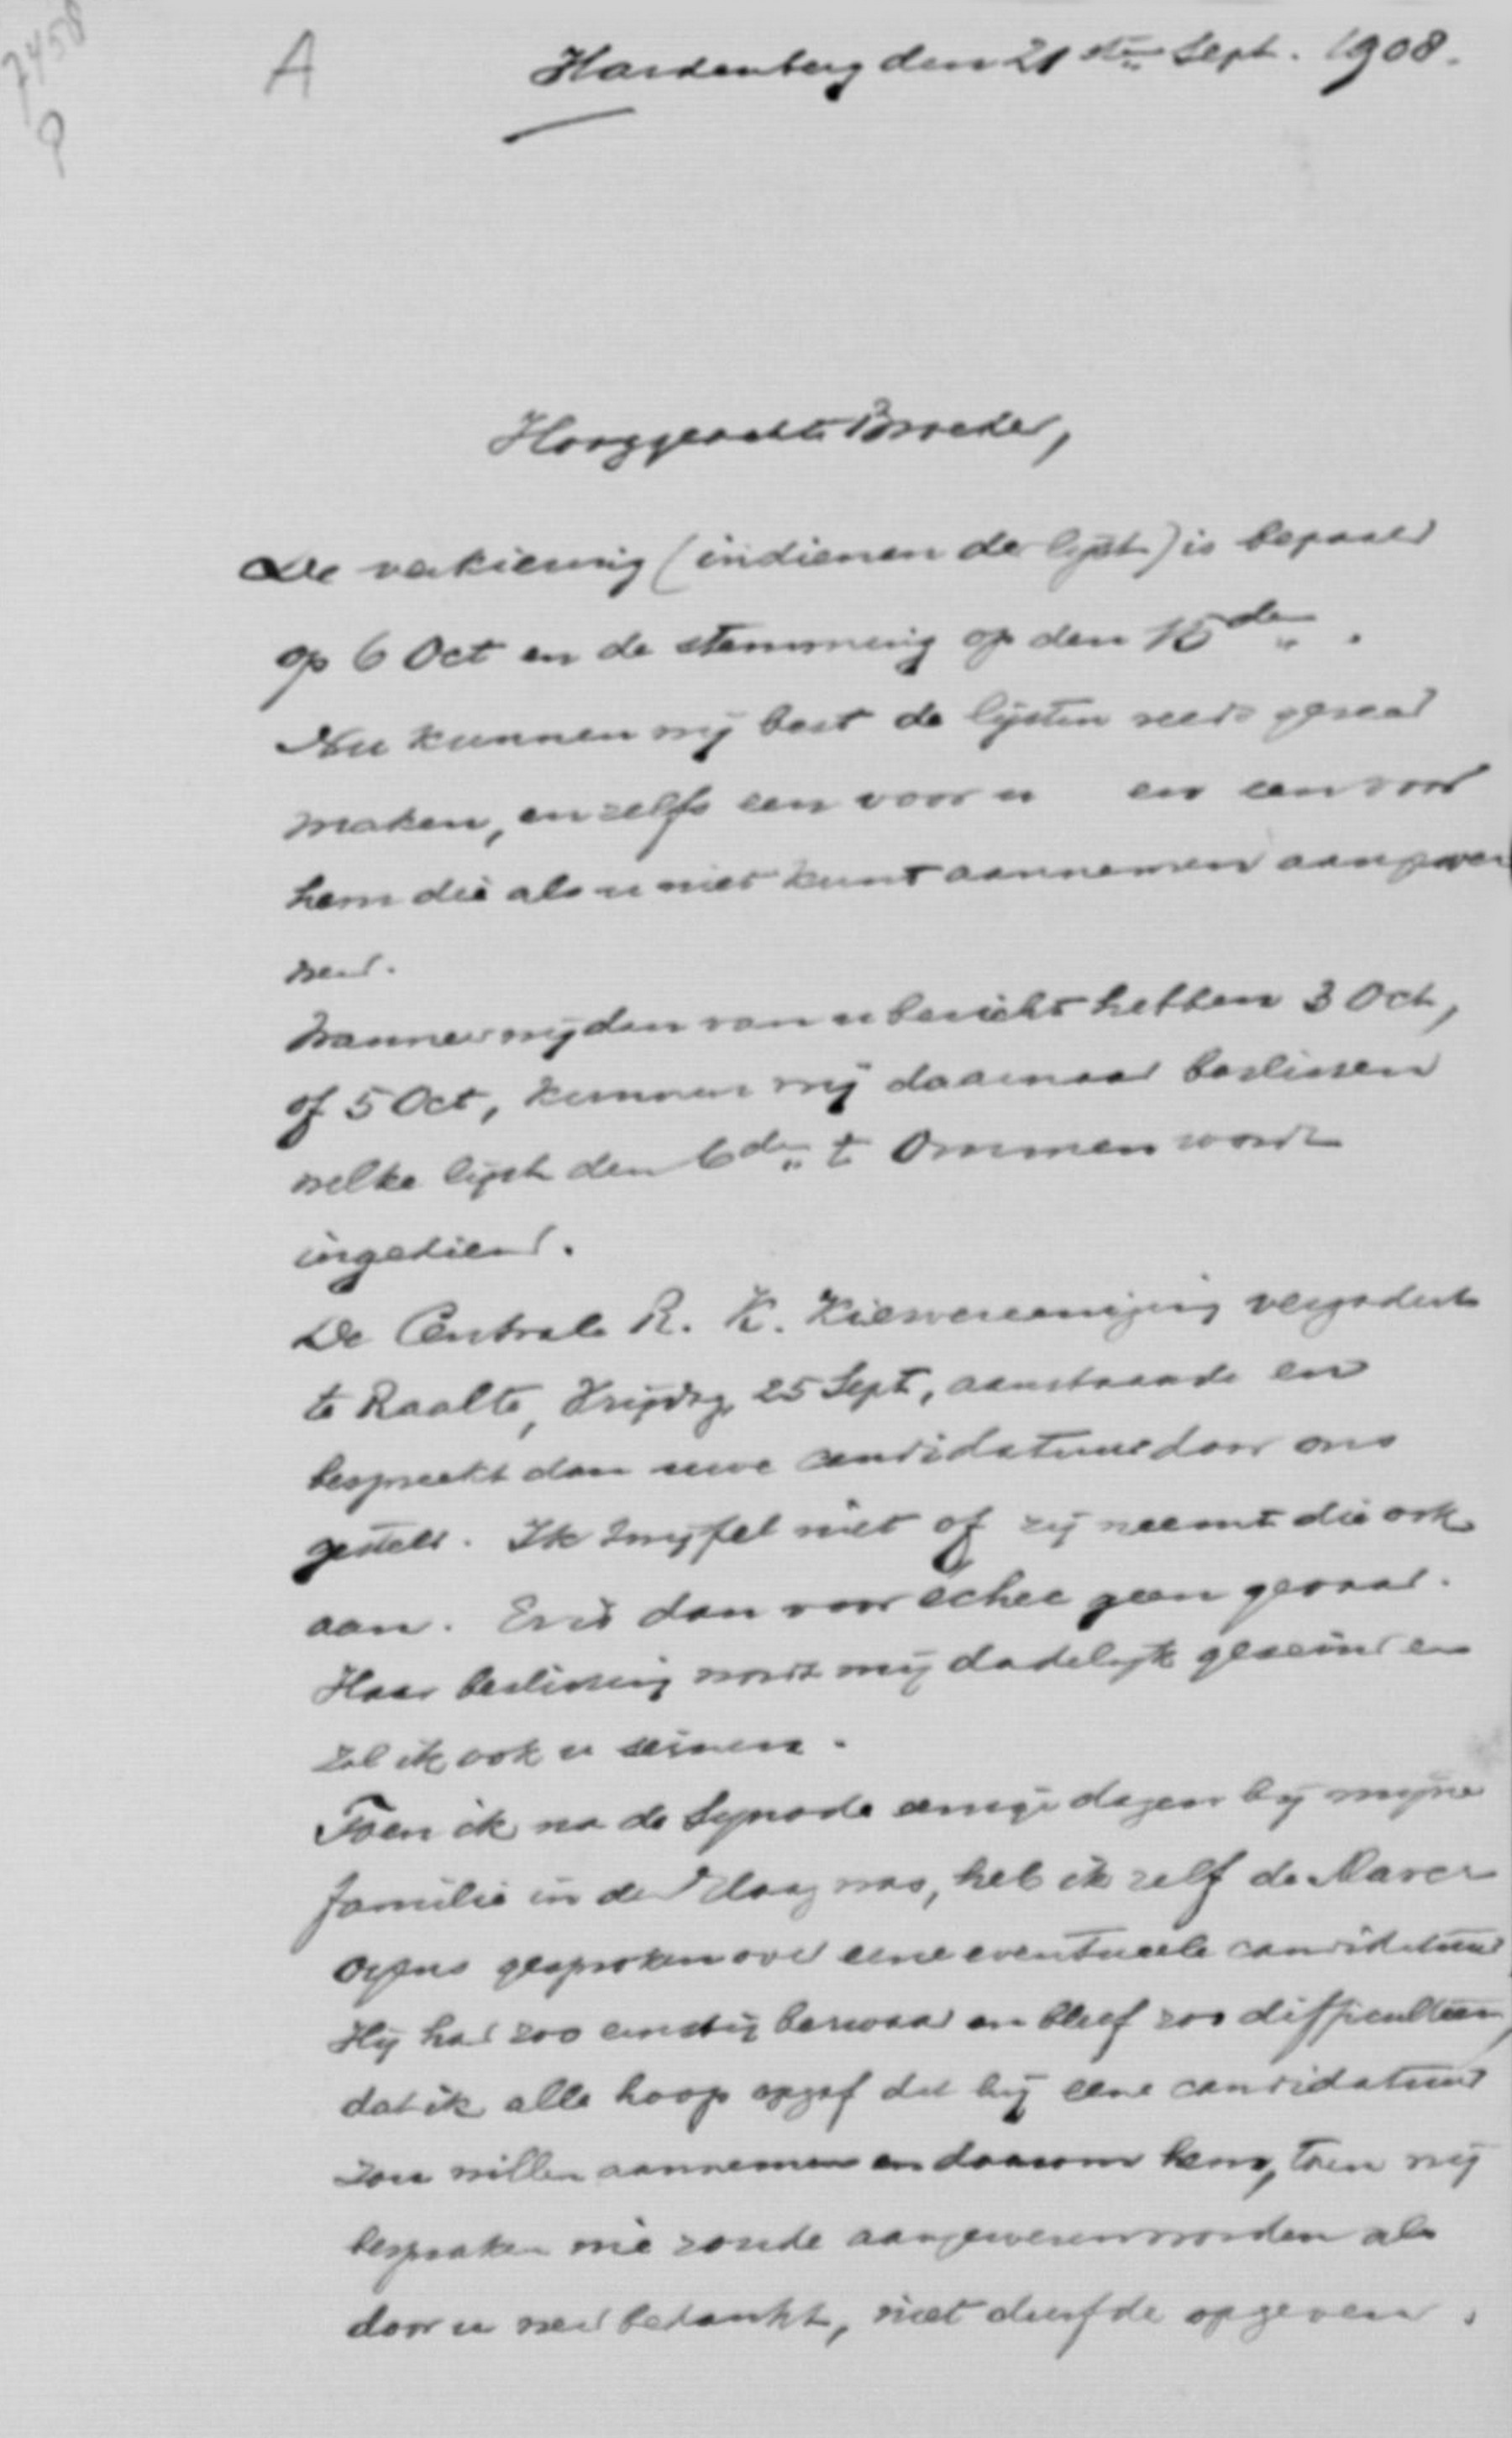 7458
A
Hardenberg den 21sten Sept. 1908.
Hooggeachte Broeder,
De verkiezing (indienen der lijst) is bepaald
op 6 Oct en de stemming op den 15den.
Nu kunnen wij best de lijsten reeds gereed
maken, en zelfs een voor u en een voor
hem die als u niet kunt aannemen aangewe
werd.
Wanneer wij dan van u bericht hebben 3 Oct,
of 5 Oct, kunnen wij daarnaar beslissen
welke lijst den 6den te Ommen wordt
ingediend.
De Centrale R. K. Kiesvereeniging vergadert
te Raalte, Vrijdag 25 Sept, aanstaande en
bespreekt dan uwe candidatuur door ons
gesteld. Ik twijfel niet of zij neemt die ook
aan. Er is dan voor échec geen gevaar.
Haar beslissing wordt mij dadelijk geseind en
zal ik ook u seinen.
Toen ik na de Synode eenige dagen bij mijne
familie in den Haag was, heb ik zelf de Marez
Oyens gesproken over eene eventueele candidatuur
Hij had zoo ernstig bezwaar en bleef zoo difficulteeren,
dat ik alle hoop opgaf dat hij eene candidatuur
zou willen aannemen en daarom hem, toen wij
bespraken wie zoude aangewezen worden als
door u werd bedankt, niet durfde opgeven.